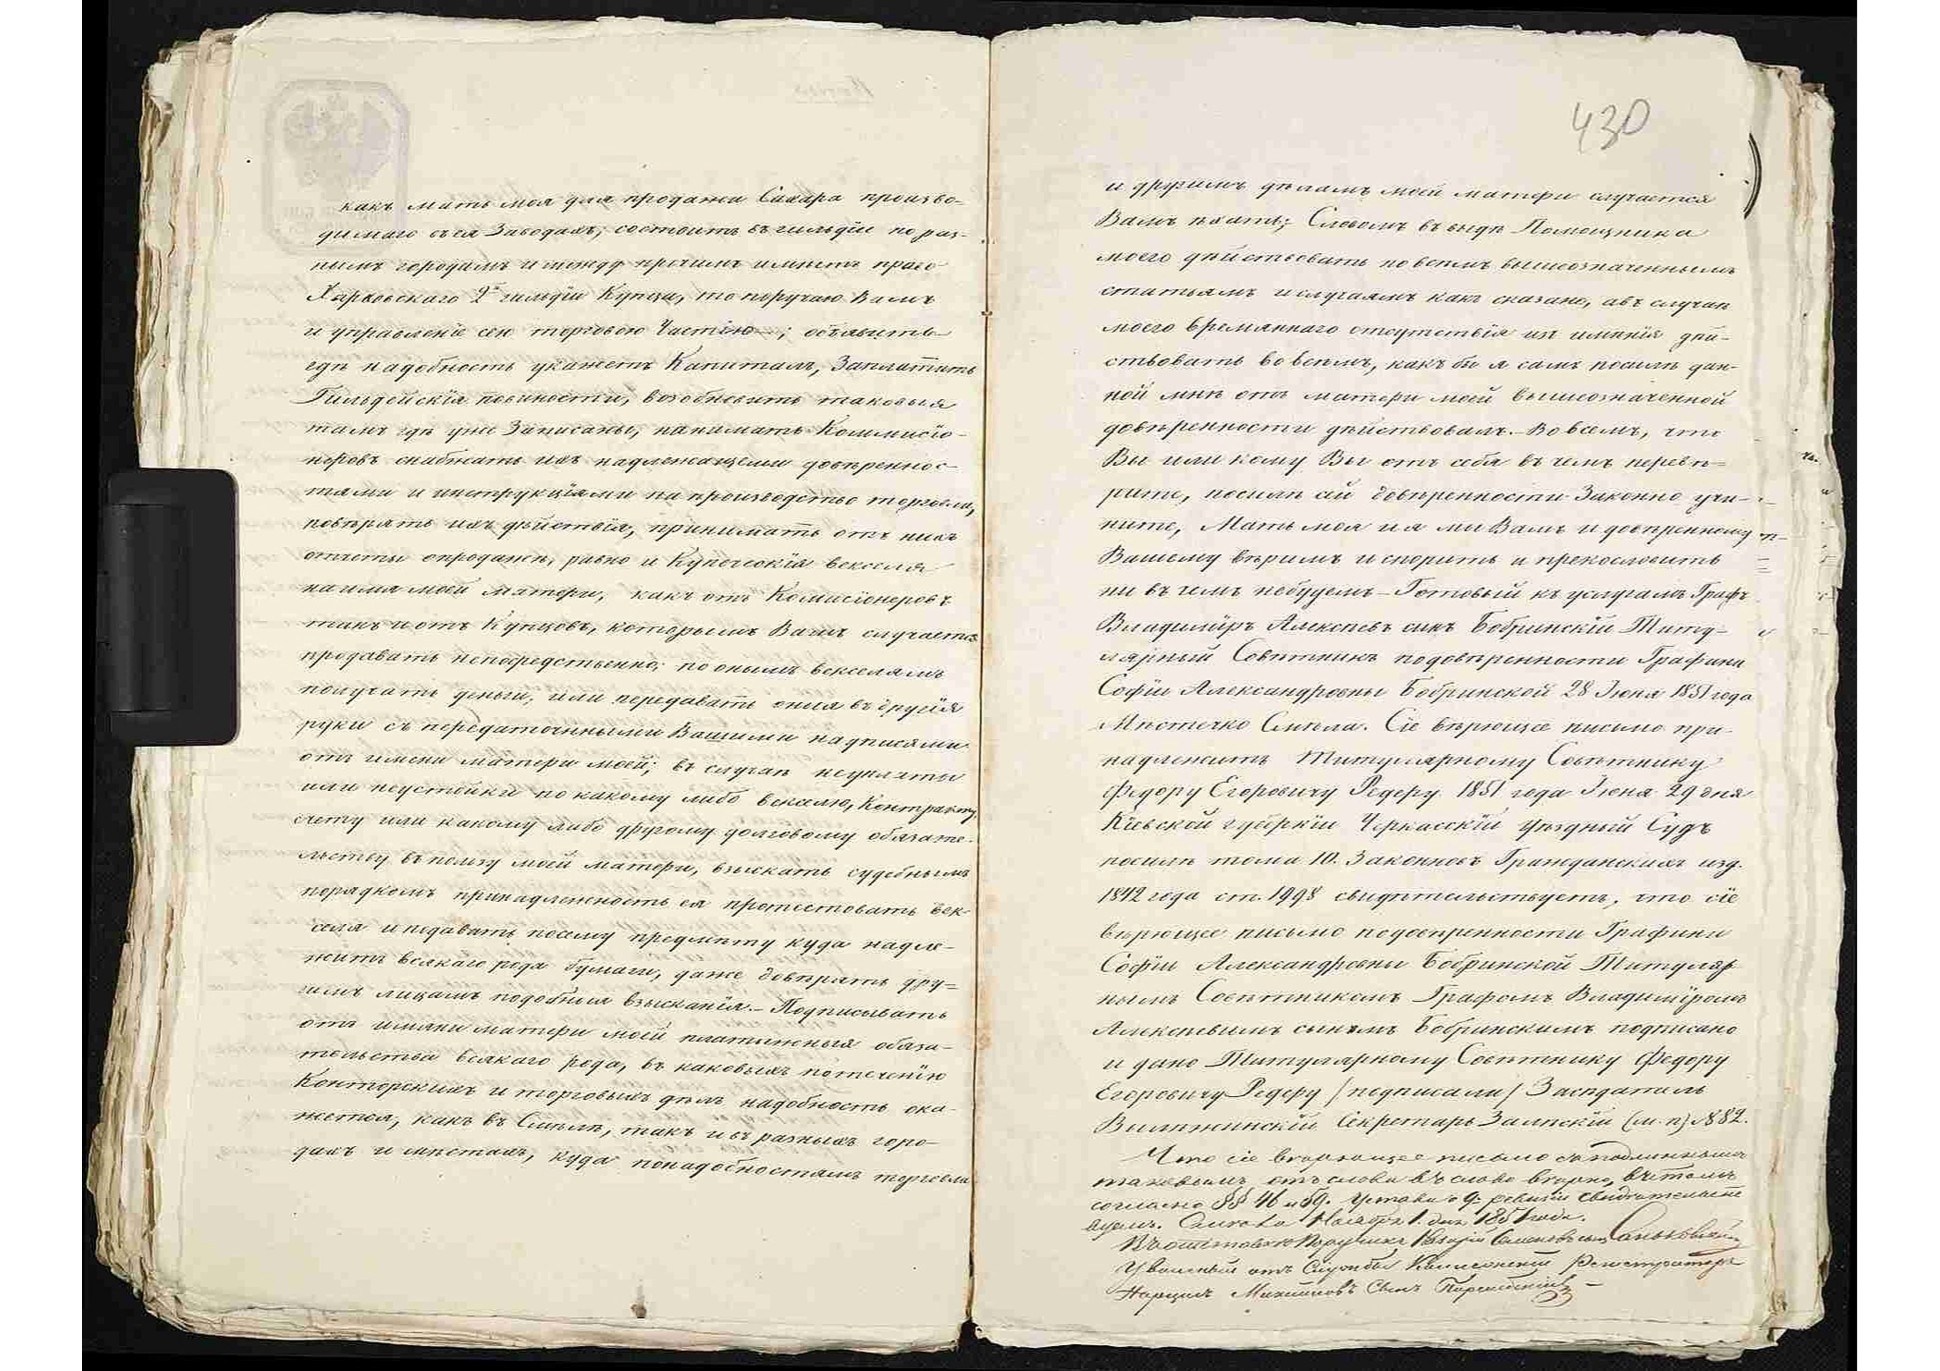 какъ мать моя для продажи Сахара произво-
димаго въ ея Заводахъ, состоитъ въ гильдіи по раз-
нымъ городамъ и между прочимъ имѣетъ право
Харьковскаго 2й гильдіи Купца, то поручаю Вамъ
и управленіе сею торговою Частію; объявить
гдѣ надобность укажетъ Капиталъ, Заплатить
Гильдейскія повиности, возобновить таковыя
тамъ гдѣ уже Записаны, нанимать Коммисіо-
неровъ снабжать ихъ надлежащеми довѣреннос-
тями и инструкціями на производство торговли,
повѣрять ихъ дѣйствія, принимать отъ нихъ
отчеты о продажѣ, равно и Купеческія векселя
на имя моей матери, какъ отъ Комисіонеровъ
такъ и отъ Купцовъ, которымъ Вамъ случается
продавать непосредственно; по онымъ векселямъ
получать деньги, или передавать оныя въ другія
руки съ передаточными Вашими надписями
отъ имени матери моей; въ случаѣ неуплаты
или неустойки по какому либо векселю, Контракту,
счету или какому либо другому долговому обязате-
льству въ пользу моей матери, взыскать судебнымъ
порядкомъ принадлежность ея протестовать век-
селя и подавать по сему предмѣту куда надле-
житъ всякаго рода бумаги, даже довѣрять дру=
гимъ лицамъ подобныя взысканія.- Подписывать
отъ имяни матери моей платежныя обяза-
тельства всякаго рода, въ каковыхъ по теченію
Конторскихъ и торговыхъ дѣлъ надобность ока-
жется, какъ въ Смѣлѣ, такъ и въ разныхъ горо-
дахъ и мѣстахъ, куда по надобностямъ торговли
430
и другимъ дѣламъ моей матери случается
Вамъ ѣхать; Словомъ въ видѣ Помощника
моего дѣйствовать по всемъ вышеозначеннымъ
статьямъ и случаямъ какъ сказано, а въ случаѣ
моего времяннаго отсутствія изъ имѣнія дѣй-
ствовать во всемъ, какъ бы я самъ посилѣ дан-
ной мнѣ отъ матери моей вышеозначенной
довѣренности дѣйствовалъ.- Во всемъ, что
Вы или кому Вы отъ себя въ чемъ перевѣ=
рите, посилѣ сей довѣренности Законно учи-
ните, Мать моя и я мы Вамъ и довѣренному
Вашему вѣримъ и спорить и прекословить
ни въ чемъ небудемъ - Готовый къ услугамъ Графъ
Владиміръ Алексѣевъ сынъ Бобринскій Титу-
лярный Совѣтникъ по довѣренности Графини
Софіи Александровны Бобринской 28 Іюня 1851 года
Мѣстечко Смѣла. Сіе вѣрющее письмо при-
надлежитъ Титулярному Совѣтнику
Федору Егоровичу Редеру 1851 года Іюня 29 дня
Кіевской губерніи Черкасскій уѣздный Судъ
посилѣ тома 10. Законновъ Гражданскихъ изд.
1842 года ст. 1998 свидѣтельствуетъ, что сіе
вѣрющее письмо по довѣренности Графини
Софіи Александровны Бобринской Титуляр
нымъ Совѣтникомъ Графомъ Владиміромъ
Алексѣевымъ сыномъ Бобринскимъ подписано
и дано Титулярному Совѣтнику Федору
Егоровичу Редеру /подписали/ Засѣдатель
Секретарь Залѣскій (м. п) №882.
Что сіе вѣрющее письмо съ подлиннымъ
таковымъ отъ слова въ слово вѣрно, въ томъ
согласно §§ 46 и 59. Устава о 9й ревизіи свидѣтельст
вуемъ. Ноября 1. дня 1851 года.
Уволеный отъ Службы Коллежскій Регистраторъ